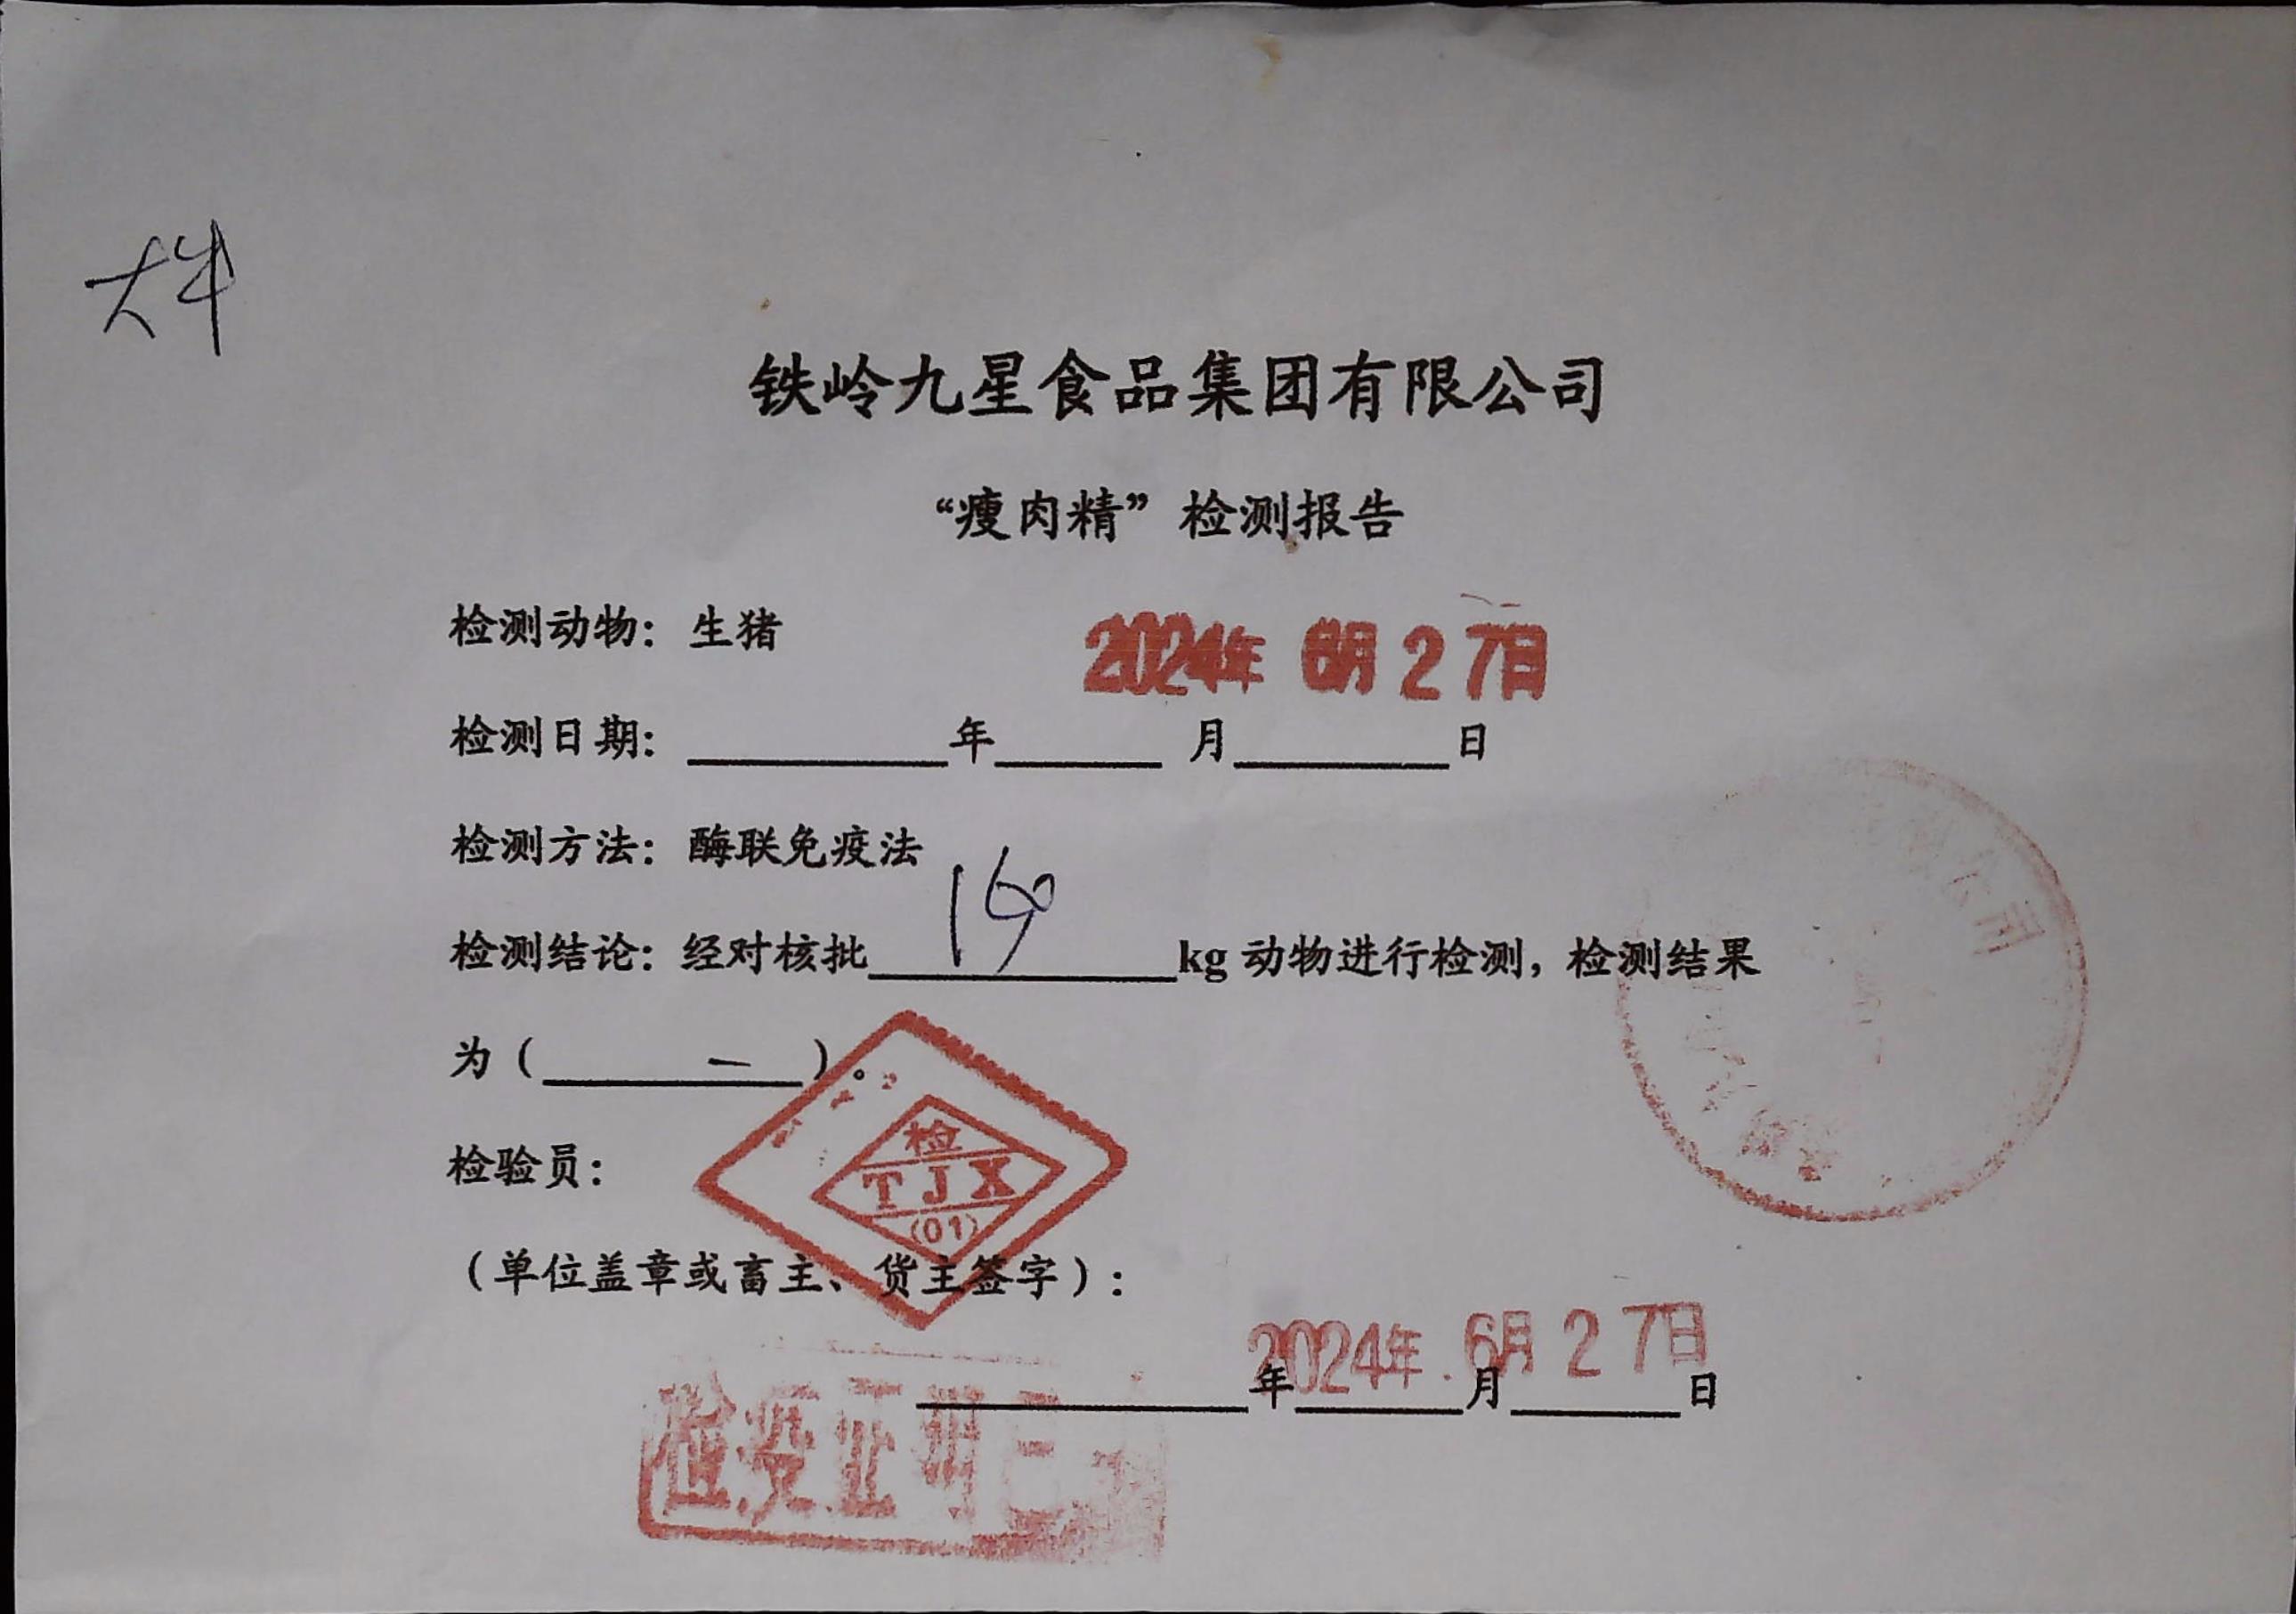 铁岭九星食品集团有限公司
“瘦肉精”检测报告
检测动物：生猪
2024年 6月 27日
检测日期：年 月 日
检测方法：酶联免疫法
检测结论：经对核批 kg 动物进行检测，检测结果
为（ 一 ）。
检
TJX
(01)
检验员：
（单位盖章或畜主、货主签字）：
2024年 6月 27日
年 月 日
检疫证明